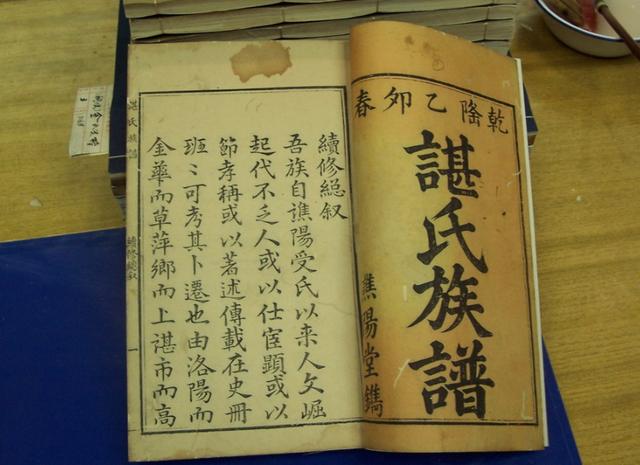 乾隆乙卯春
諶氏族譜
譙陽堂鐫
續修總叙
吾族自譙陽受氏以来人文崛
起代不乏人或以仕宦顯或以
節孝稱或以著述傳載在史册
班〻可考其卜遷也由洛陽而
金華而草萍鄉而上諶市而高
諶氏族譜
續修總叙
一